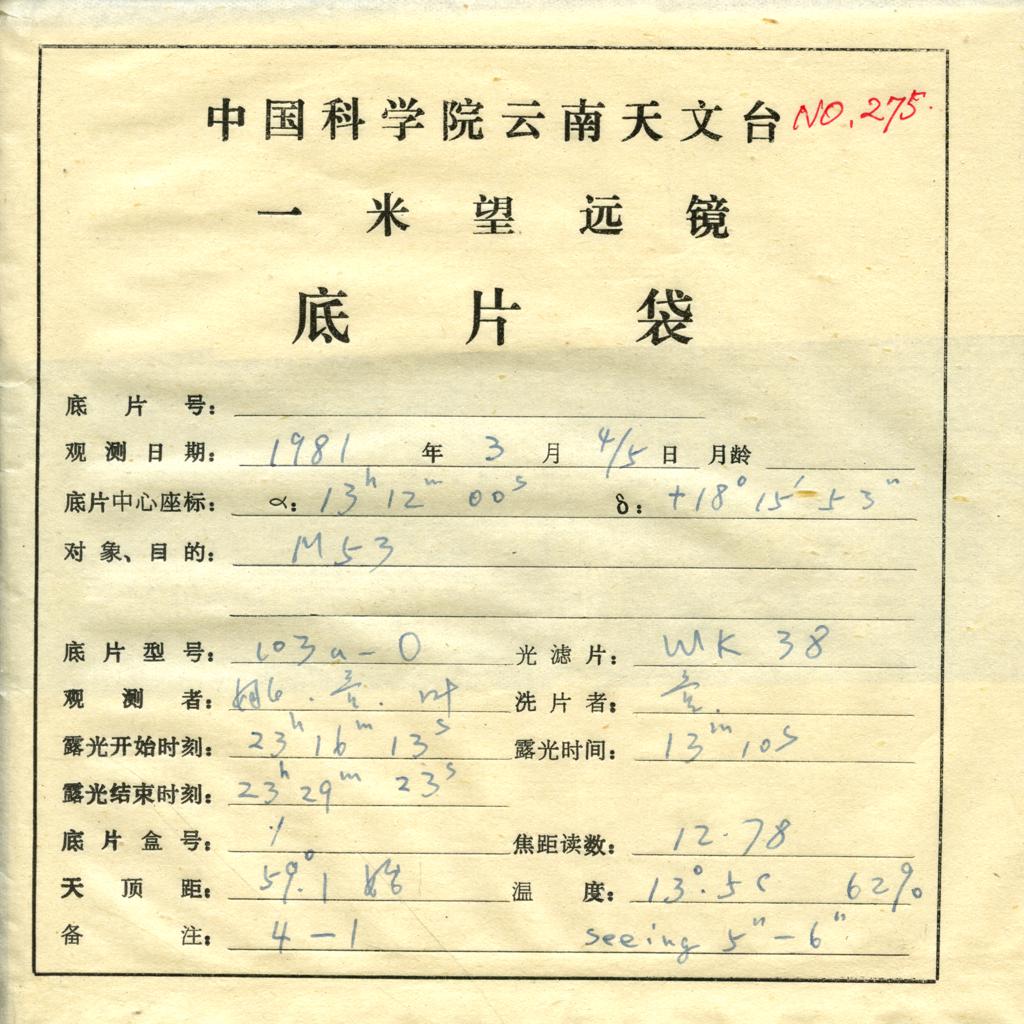 中国科学院云南天文台 NO. 275.
一米望远镜
底片袋
底片号:
观测日期: 1981 年 3 月 4/5 日 月龄
底片中心座标: α: 13h 12m 00s δ: +18° 15′ 53″
对象、目的: M53
底片型号: 103a-O 光滤片: WK 38
观测者: 洗片者:
露光开始时刻: 23h 16m 13s 露光时间: 13m 10s
露光结束时刻: 23h 29m 23s
底片盒号: 焦距读数: 12.78
天顶距: 59°.1 始 温度: 13°.5C 62%
备注: 4-1 seeing 5″-6″